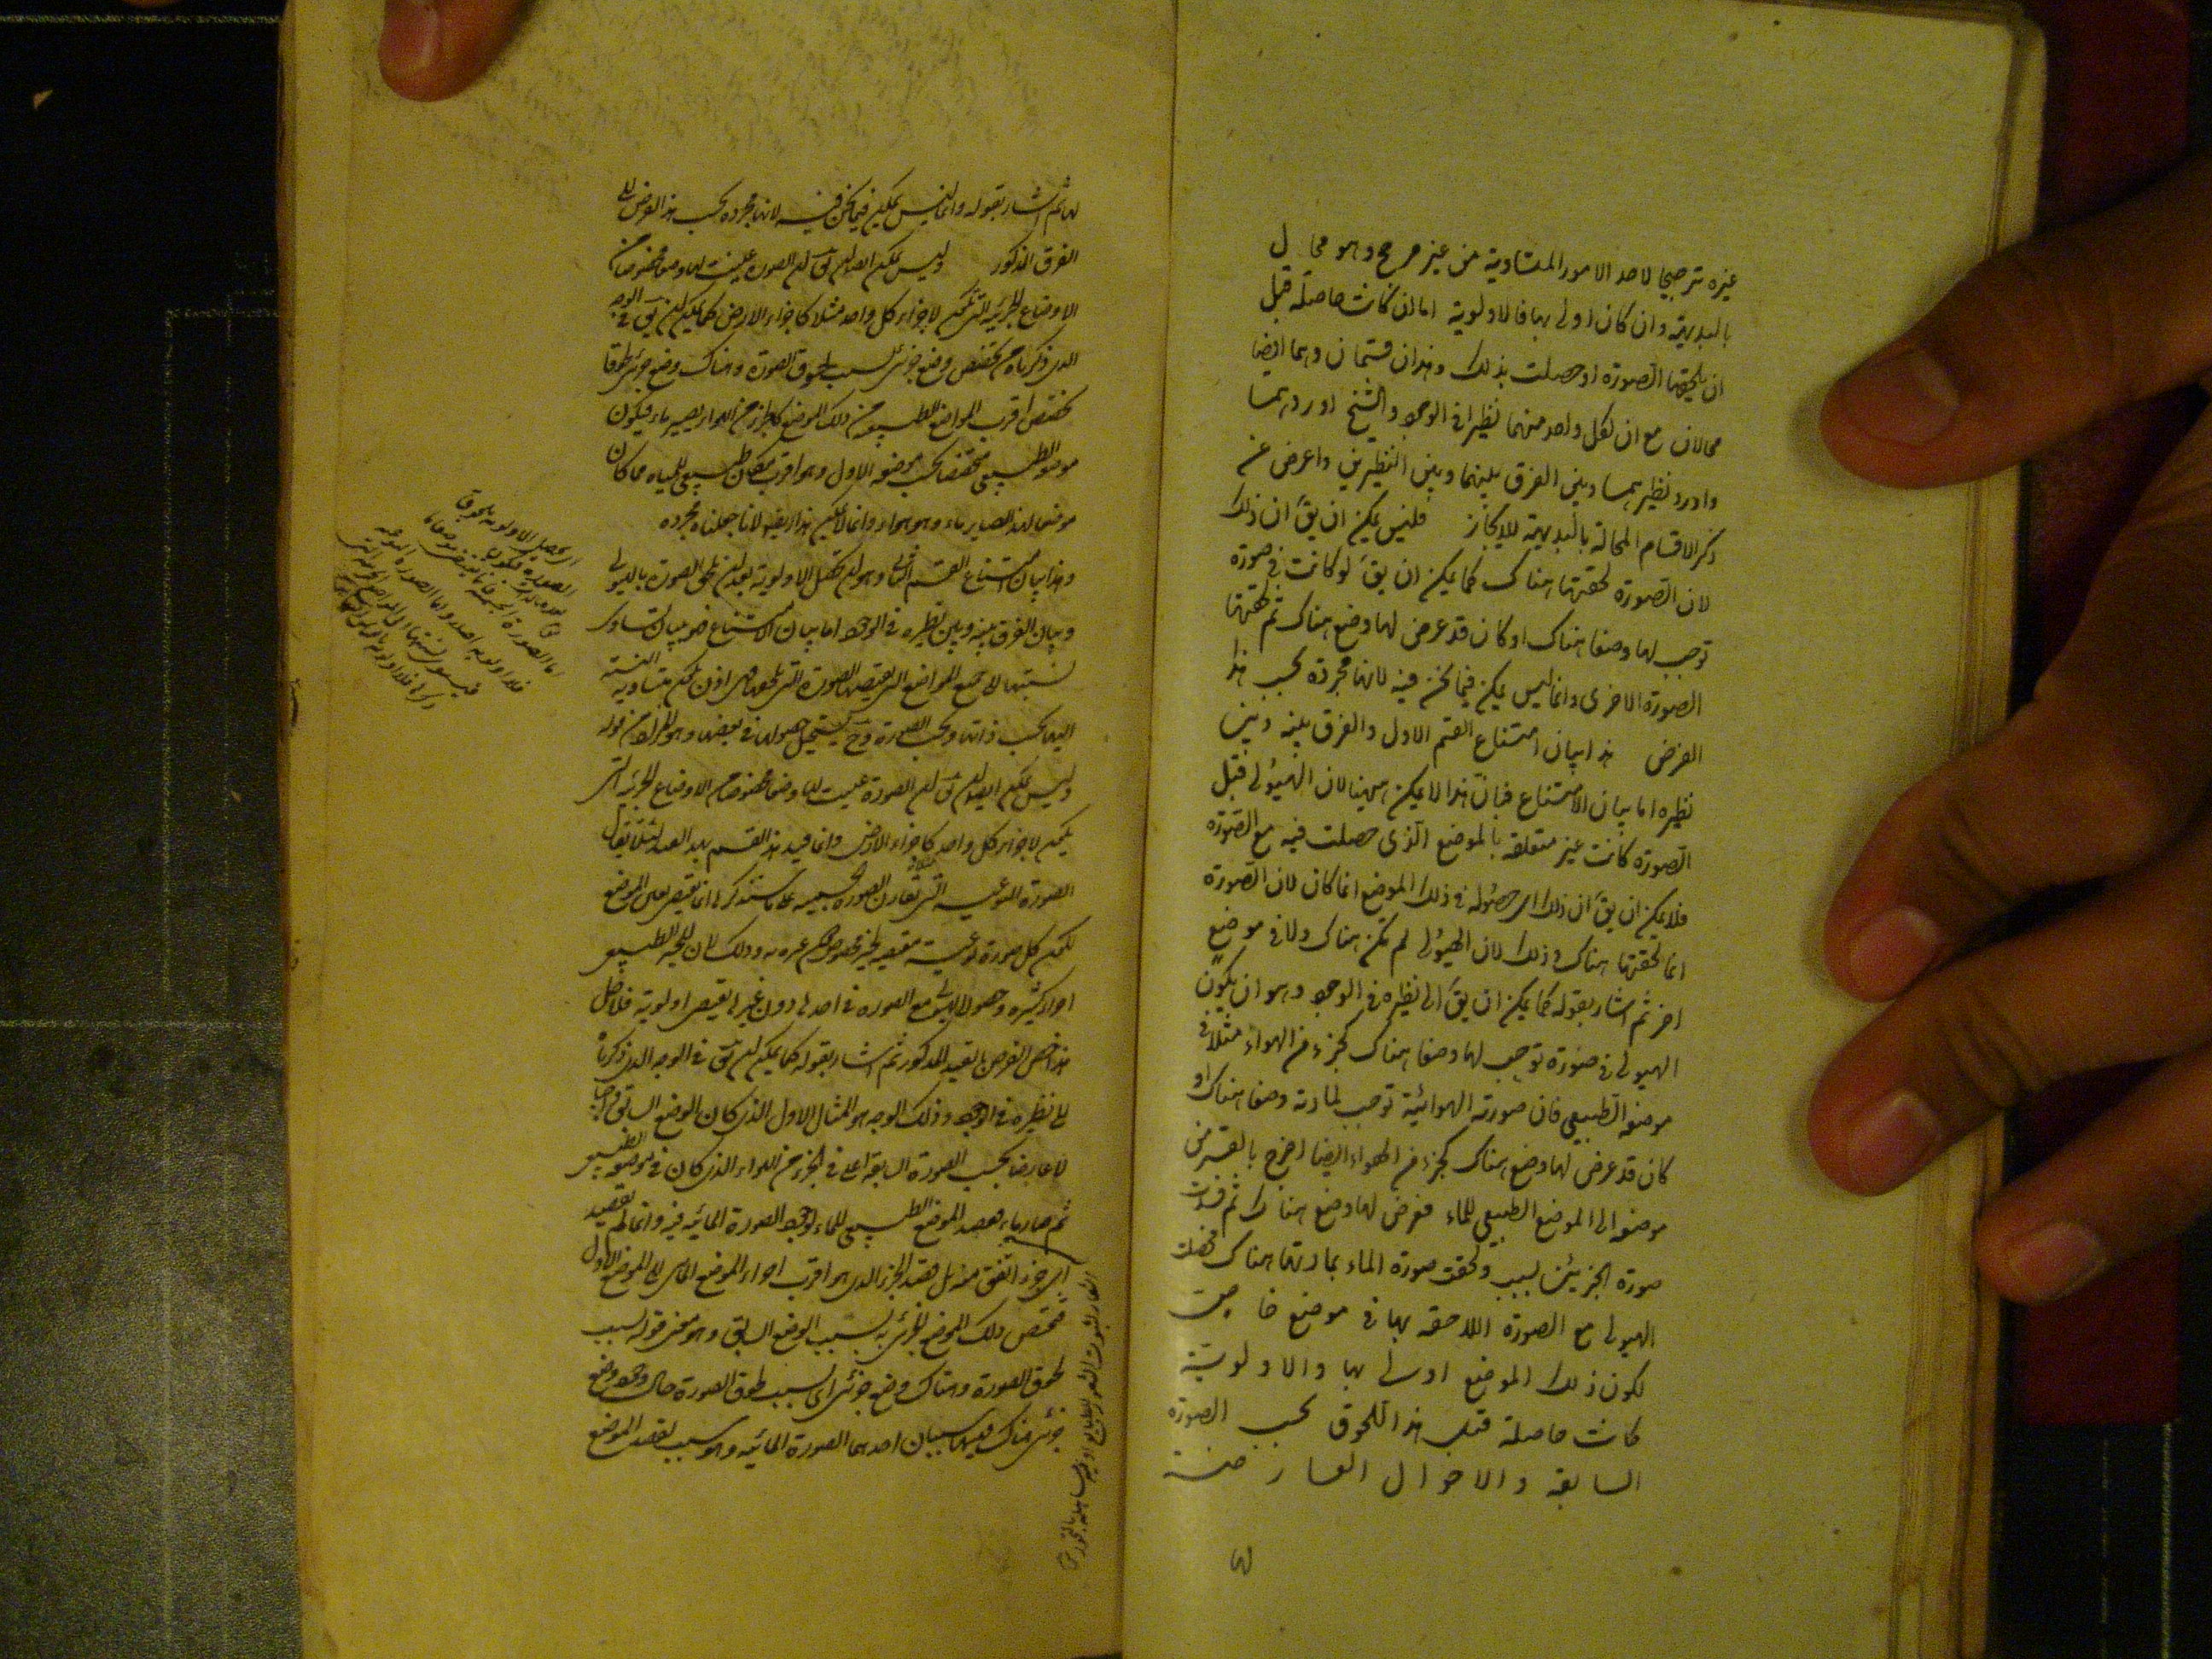 غيره ترجيحا لاحد الامور المتساوية من غير مرجح وهو محال
بالبديهة وان كان اولى بها فالاولوية اما ان كانت حاصلة قبل
ان يلحقها الصورة او حصلت بذلك وهذان قسمان وهما ايضا
محالان مع ان لكل واحد منهما نظيرا في الوجود والشيخ اوردهما
واورد نظيرهما وبين الفرق بينهما وبين النظيرين واعرض عن
ذكر الاقسام المحالة بالبديهة للايجاز فليس يمكن ان يق ان ذلك
لان الصورة لحقتها هناك كما يمكن ان يق لو كانت في صورة
توجب لها وضعا هناك او كان قد عرض لها وضع هناك ثم لحقتها
الصورة الاخرى وانما ليس يمكن فيما نحن فيه لانها مجردة بحسب هذا
الفرض هذا بيان امتناع القسم الاول والفرق بينه وبين
نظيره اما بيان الامتناع فبان هذا لا يمكن ههنا لان الهيولى قبل
الصورة كانت غير متعلقة بالموضع الذى حصلت فيه مع الصورة
فلا يمكن ان يق ان ذلك اى حصوله في ذلك الموضع انما كان لان الصورة
انما لحقتها هناك وذلك لان الهيولى لم تكن هناك ولا في موضع
اخر ثم اشار بقوله كما يمكن ان يق الى نظيره في الوجود وهو ان يكون
الهيولى في صورة توجب لها وضعا هناك كجزء من الهواء مثلا في
موضعه الطبيعي فان صورته الهوائية توجب لمادته وضعا هناك او
كان قد عرض لها وضع هناك كجزء من الهواء ايضا اخرج بالقسر من
موضعه الى الموضع الطبيعي للماء فعرض لها وضع هناك ثم فسدت
صورة الجزئين لسبب ولحقت صورة الماء بمادتها هناك فحصلت
الهيولى مع الصورة اللاحقة بها في موضع خاص
لكون ذلك الموضع اولى بها والاولوية
كانت حاصلة قبل هذا اللحوق بحسب الصورة
السابقة والاحوال العارضة
لها
لها ثم اشار بقوله وانما ليس يمكن فيما نحن فيه لانها مجردة بحسب هذا الفرض الى
الفرق المذكور وليس يمكن ايضا ان يق ان الصورة عينت لها وضعا مخصوصا من
الاوضاع الجزئية التي تمكن لاجزاء كل واحد مثلا كاجزاء الارض كما يمكن ان يق في الوجه
الذى ذكرناه من تخصص وضع جزئى بسبب لحوق الصورة وهناك وضع جزئى لحوقا
تخصص اقرب المواضع الطبيعية من ذلك الموضع كالجزء من الهواء يصير ماء فيكون
موضعه الطبيعي متخصصا بحسب موضعه الاول وهو اقرب مكان طبيعي للمياه مما كان
موضعا لهذا الصاير ماء وهو هواء وانما لا يمكن هذا ايضا لانا جعلناه مجردة
وهذا بيان امتناع القسم الثانى وهو ان تحصل الاولوية بعد ان تلحق الصورة بالهيولى
وبيان الفرق بينه وبين نظيره في الوجود اما بيان الامتناع فهو بيان تساوى
نسبتها الى جميع المواضع التي تقتضيها الصورة التي تلحقها فهى اذن تكون متساوية النسبة
اليها بحسب ذاتها وبحسب الصورة وح يستحيل حصولها في بعضها وهو المراد من قوله
وليس يمكن ايضا ان يق ان الصورة عينت لها وضعا مخصوصا من الاوضاع الجزئية التي
يمكن لاجزاء كل واحد كاجزاء الارض وانما قيد هذا القسم بهذا القيد لئلا يقال
الصورة النوعية التي تقارن الصورة الجسمية على ما سنذكر انما تقتضى الموضع
لكون كل صورة نوعية مقتضية لحيز مخصوص دون غيره وذلك لان للحيز الطبيعي
اجزاء كثيرة وحصول الهيولى مع الصورة في احدها دون غيرها يقتضى اولوية فلاجل
هذا خص الفرض بالقيد المذكور ثم اشار بقوله كما يمكن ان يق في الوجه الذى ذكرناه
الى نظيره في الوجود وذلك الوجه هو المثال الاول الذى كان الوضع السابق
لا عارضا بحسب الصورة السابقة اعنى في الجزء من الهواء الذى كان في موضعه الطبيعي
ثم صار ماء فقصد الموضع الطبيعي للماء لوجود الصورة المائية فيه وانما لم تقصد
اى جزء اتفق منه بل قصد الجزء الذى هو اقرب اجزاء الموضع المائى الى الموضع الاول
فتخصص ذلك الموضع الجزئى به بسبب الوضع السابق وهو معنى قوله بسبب
لحوق الصورة وهناك وضع جزئى اى بسبب لحوق الصورة حال وجود وضع
جزئى هناك فههنا سببان احدهما الصورة المائية وهو سبب لقصد الموضع